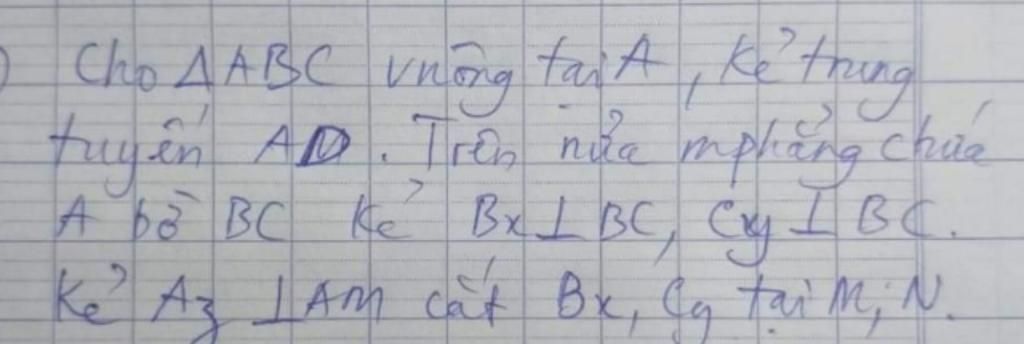 Cho ΔABC vuông tại A, kẻ trung
tuyến AD. Trên nửa mphẳng chứa
A bờ BC kẻ Bx⊥BC, Cy⊥BC.
Kẻ Az ⊥AM cắt Bx, Cy tại M, N.